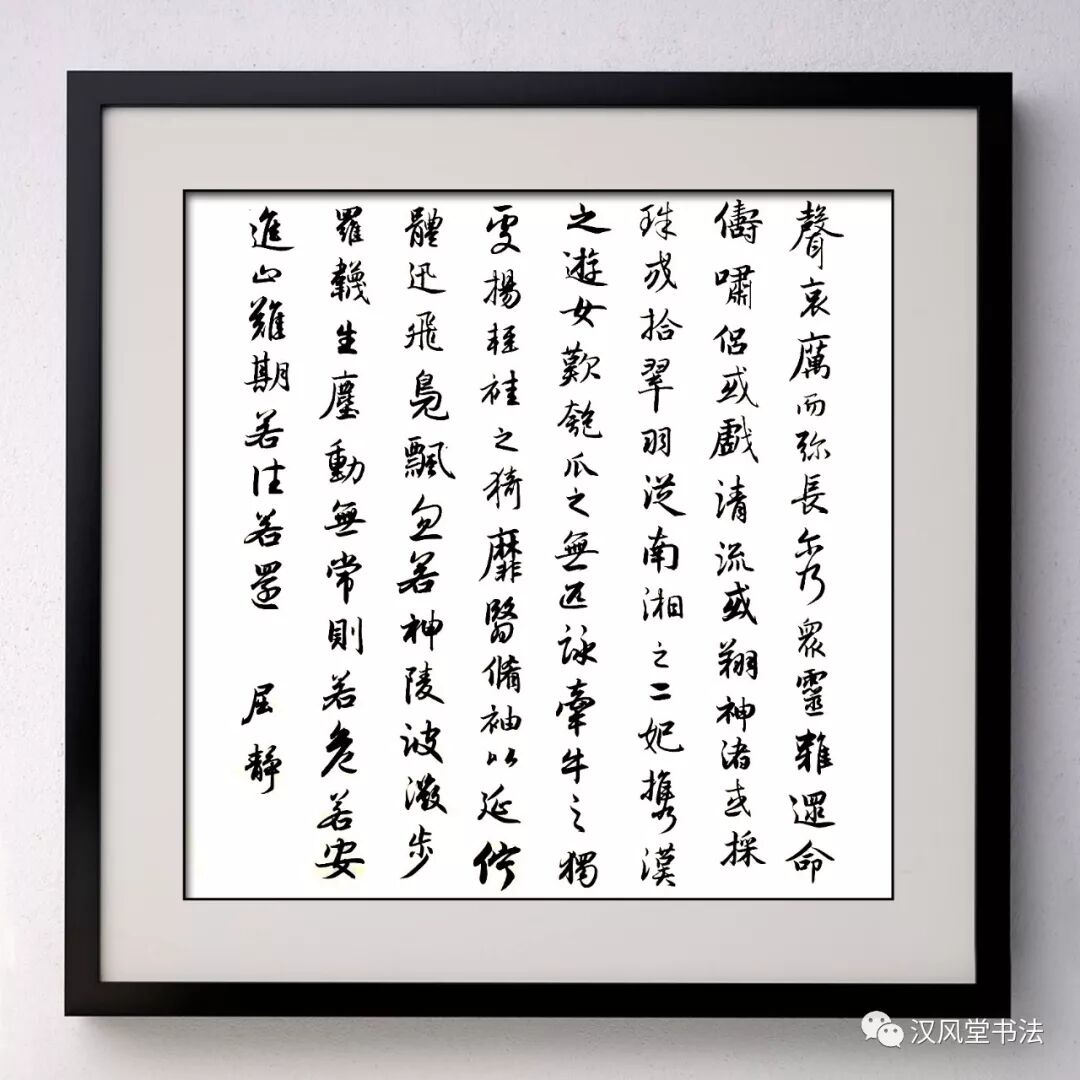 聲哀厲而弥長尔乃衆靈雜遝命
儔嘯侶或戲清流或翔神渚或採
珠或拾翠羽從南湘之二妃攜漢
之遊女歎匏瓜之無匹詠牽牛之獨
處揚輕袿之猗靡翳脩袖以延佇
體迅飛鳧飄忽若神陵波微步
羅韈生塵動無常則若危若安
進止難期若往若還 屈靜
汉风堂书法